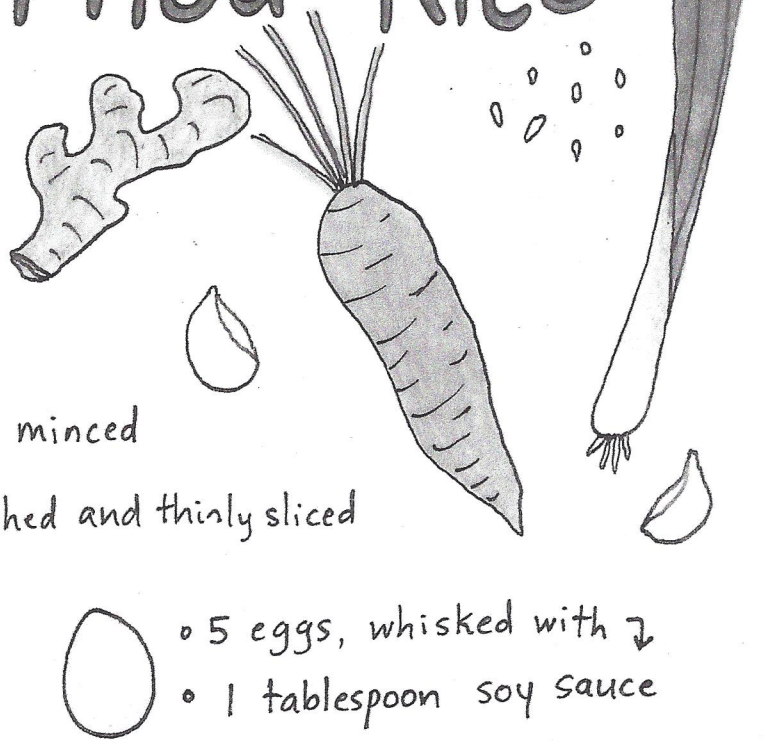 Fried Rice
minced
hed and thinly sliced
• 5 eggs, whisked with ⤵
• 1 tablespoon soy sauce